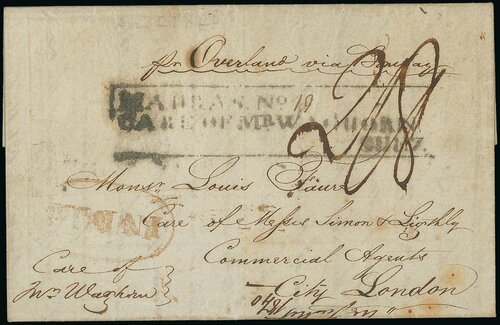 pr Overland via Bombay
MADRAS. No 19
CARE OF MR WAGHORN
SUEZ
2/8
Monsr Louis Faure
Care of Messrs Simon & Lightly
Commercial Agents
City London
Care of
Mr Waghorn
INDIA